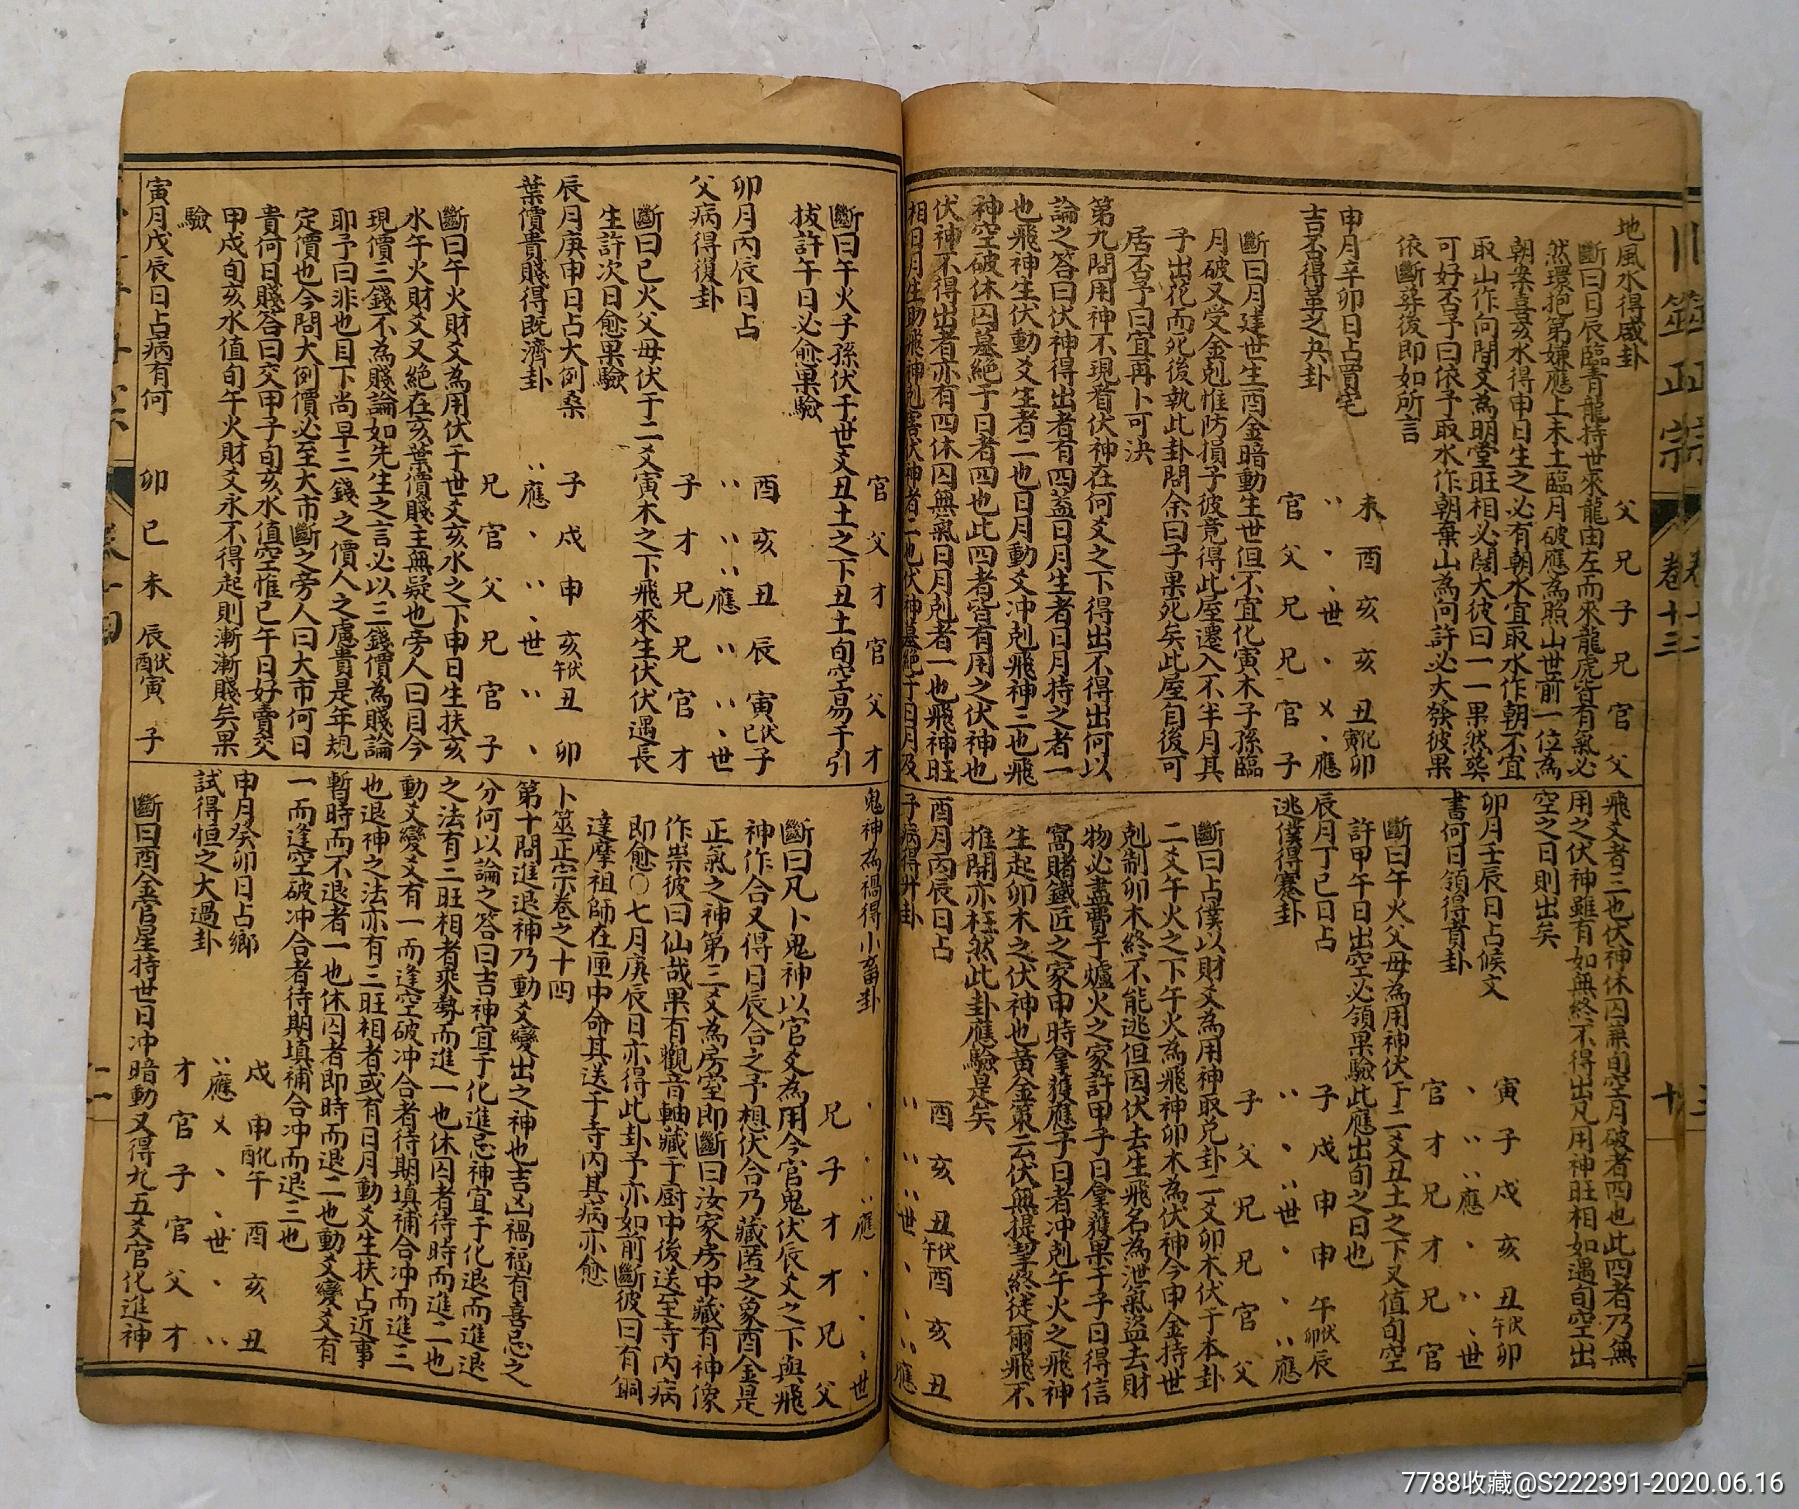 卜筮正宗
卷十三
十
地風水得咸卦
父兄子兄官父
斷曰日辰臨青龍持世來龍由左而來龍虎皆有氣必
然環抱第嫌應上未土臨月破應為照山世前一位為
朝案喜亥水得申日生之必有朝水宜取水作朝不宜
取山作向間爻為明堂旺相必闊大彼曰一一果然葵
可好否予曰依予取水作朝棄山為向許必大發彼果
依斷葬後即如所言
申月辛卯日占買宅
吉否得革之夬卦
未酉亥亥丑化寅卯
世 應
官父兄兄官子
斷曰月建世生酉金暗動生世但不宜化寅木子孫臨
月破又受金剋惟防損子彼竟得此屋遷入不半月其
子出花而死後執此卦問余曰子果死矣此屋自後可
居否予曰宜再卜可決
第九問用神不現看伏神在何爻之下得出不得出何以
論之答曰伏神得出者有四蓋日月生者日月持之者一
也飛神生伏動爻生者二也日月動爻冲剋飛神三也飛
神空破休囚墓絕于日者四也此四者皆有用之伏神也
伏神不得出者亦有四休囚無氣日月剋者一也飛神旺
相日月生助飛神剋害伏神者二也伏神墓絕于日月及
飛爻者三也伏神休囚兼旬空月破者四也此四者乃無
用之伏神雖有如無終不得出凡用神旺相如遇旬空出
空之日則出矣
卯月壬辰日占候文
書何日領得賁卦
寅子戌亥丑伏午卯
應 世
官才兄才兄官
斷曰午火父母為用神伏于二爻丑土之下又值旬空
許甲午日出空必領果驗此應出旬之日也
辰月丁巳日占
逃僕得蹇卦
子戌申申午伏卯辰
世 應
子父兄兄官父
斷曰占僕以財爻為用神取兌卦二爻卯木伏于本卦
二爻午火之下午火為飛神卯木為伏神今申金持世
剋制卯木終不能逃但因伏去生飛名為泄氣盜去財
物必盡費于爐火之家許甲子日拿獲果于子日得信
窩賭鐵匠之家申時拿獲應子日者冲剋午火之飛神
生起卯木之伏神也黃金策云伏無提挈終徒爾飛不
推開亦枉然此卦應驗是矣
酉月丙辰日占
子病得升卦
酉亥丑伏午酉亥丑
世 應
官父才官父才
斷曰午火子孫伏于世爻丑土之下丑土旬空易于引
拔許午日必愈果驗
卯月丙辰日占
父病得復卦
酉亥丑辰寅伏巳子
應 世
子才兄兄官才
斷曰巳火父母伏于二爻寅木之下飛來生伏伏遇長
生許次日愈果驗
辰月庚申日占大例桑
葉價貴賤得既濟卦
子戌申亥伏午丑卯
應 世
兄官父兄官子
斷曰午火財爻為用伏于世爻亥水之下申日生扶亥
水午火財爻又絕在亥葉價賤主無疑也旁人曰目今
現價三錢不為賤論如先生之言必以三錢價為賤論
耶予曰非也目下尚早三錢之價人之慮貴是年規
定價也今問大例價必至大市斷之旁人曰大市何日
貴何日賤答曰交甲子旬亥水值空惟巳午日好賣交
甲戌旬亥水值旬午火財爻永不得起則漸漸賤矣果
驗
寅月戊辰日占病有何
卯巳未辰伏酉寅子
鬼神為禍得小畜卦
應 世
兄子才才兄父
斷曰凡卜鬼神以官爻為用今官鬼伏辰爻之下與飛
神作合又得日辰合之予想伏合乃藏匿之象酉金是
正氣之神第三爻為房堂即斷曰汝家房中藏有神像
作祟彼曰仙哉果有觀音軸藏于厨中後送至寺內病
即愈〇七月庚辰日亦得此卦予亦如前斷彼曰有銅
達摩祖師在匣中命其送于寺內其病亦愈
卜筮正宗卷之十四
第十問進退神乃動爻變出之神也吉凶禍福有喜忌之
分何以論之答曰吉神宜于化進忌神宜于化退而進退
之法有三旺相者乘勢而進一也休囚者待時而進二也
動爻變爻有一而逢空破冲合者待期填補合冲而進三
也退神之法亦有三旺相者或有日月動爻生扶占近事
暫時而不退者一也休囚者即時而退二也動爻變爻有
一而逢空破冲合者待期填補合冲而退三也
申月癸卯日占鄉
試得恒之大過卦
戌申化酉午酉亥丑
應 世
才官子官父才
斷曰酉金官星持世日冲暗動又得九五爻官化進神